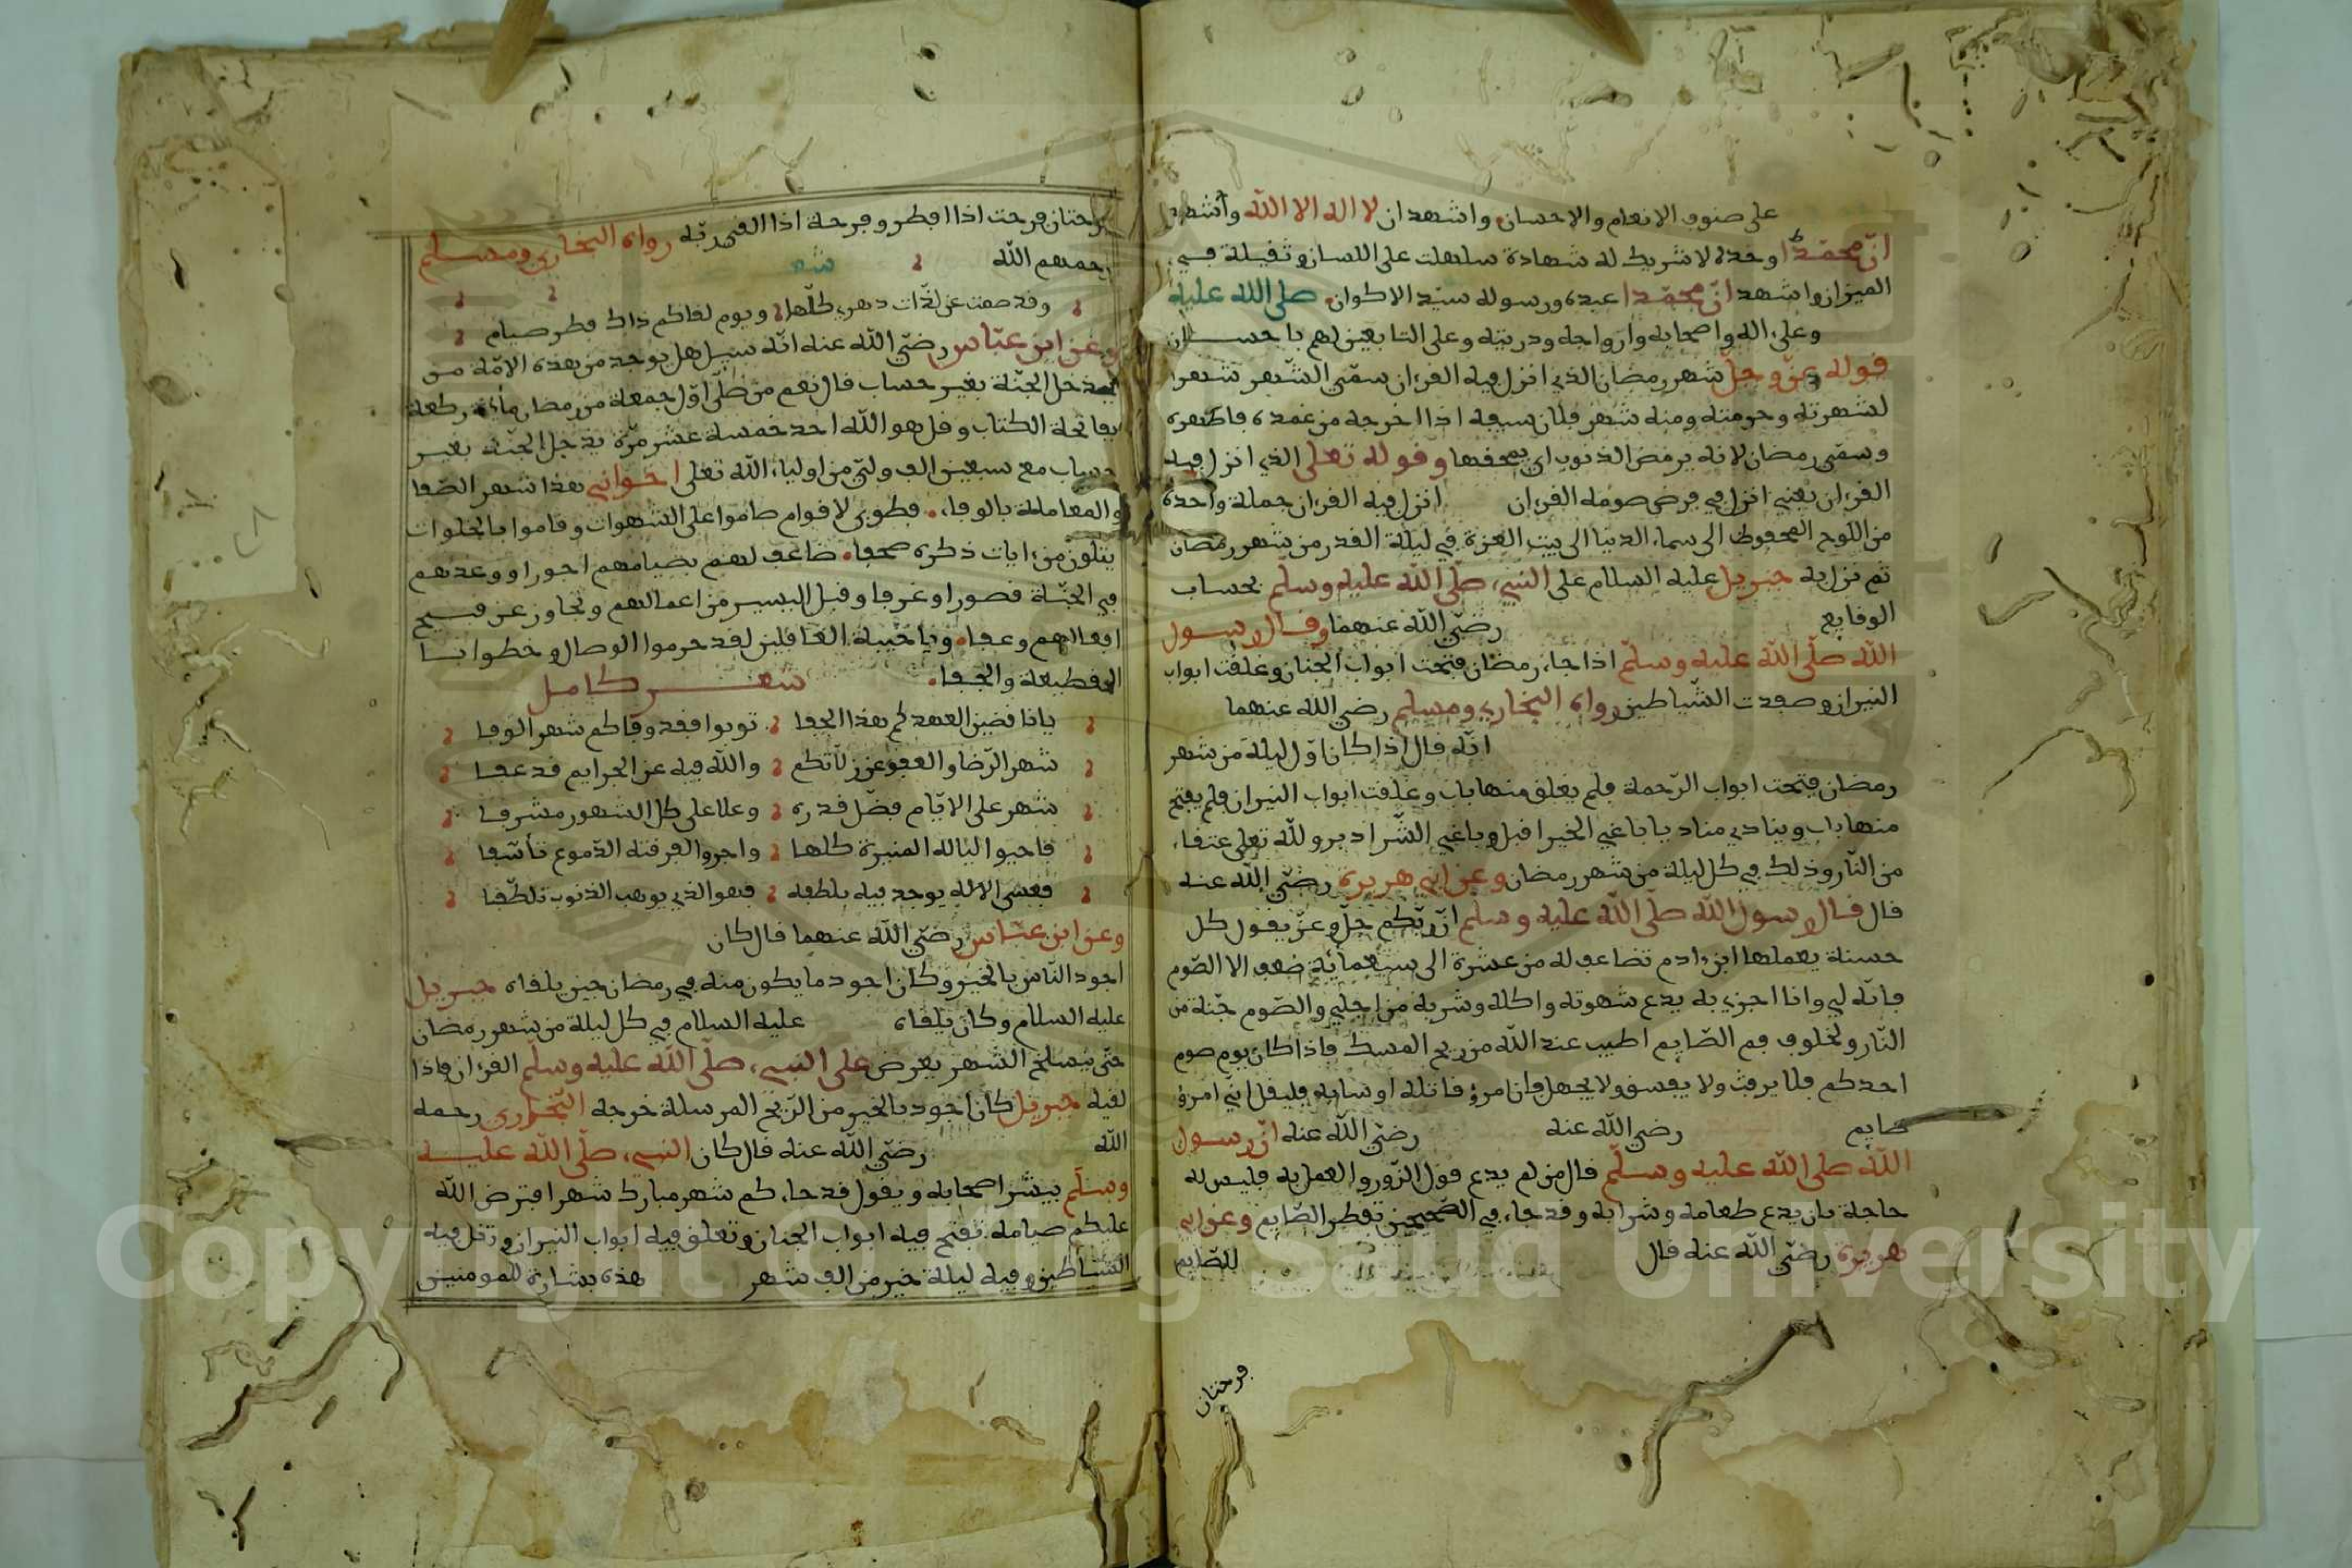 على صنوف الانعام والاحسان واشهد ان لا اله الا الله واشهد
انّ محمّدا وحده لا شريك له شهادة سهلت على اللسان وثقيلة في
الميزان واشهد انّ محمّدا عبده ورسوله سيّد الاكوان صلى الله عليه
وعلى اله واصحابه وازواجه وذريته وعلى التابعين لهم باحسان
قوله عزّ وجلّ شهر رمضان الذي انزل فيه القرءان سمّي الشّهر شهرا
لشهرته وحرمته ومنه شهر فلان سيفه اذا اخرجه من غمده فاظهره
وسمّي رمضان لانه يرمض الذنوب اي يمحقها وقوله تعلى الذي انزل فيه
القرءان يعني انزل في فرض صومه القرءان انزل فيه القرءان جملة واحدة
من اللوح المحفوظ الى سماء الدنيا الى بيت العزة في ليلة القدر من شهر رمضان
ثم نزل به جبريل عليه السلام على النبيء صلّى الله عليه وسلم بحساب
الوقايع رضي الله عنهما وقال رسول
الله صلّى الله عليه وسلّم اذا جاء رمضان فتحت ابواب الجنان وغلقت ابواب
النيران وصفدت الشّياطين رواه البخاري ومسلم رضي الله عنهما
انّه قال اذا كان اوّل ليلة من شهر
رمضان فتحت ابواب الرّحمة فلم يغلق منها باب وغلقت ابواب النيران فلم يفتح
منها باب وينادي مناد يا باغي الخير اقبل ويا باغي الشّر ادبر ولله تعلى عتقاء
من النّار وذلك في كل ليلة من شهر رمضان وعن ابي هريرة رضي الله عنه
قال قال رسول الله صلى الله عليه وسلم انّ ربّكم جلّ وعزّ يقول كل
حسنة يعملها ابن ءادم تضاعف له من عشرة الى سبعمائة ضعف الا الصّوم
فانّه لي وانا اجزي به يدع شهوته واكله وشربه من اجلي والصّوم جنّة من
النّار ولخلوف فم الصّايم اطيب عند الله من ريح المسك فاذا كان يوم صوم
احدكم فلا يرفث ولا يفسق ولا يجهل فان امرؤ قاتله او سابه فليقل انّي امرؤ
صايم رضي الله عنه رضي الله عنه انّ رسول
الله صلى الله عليه وسلّم قال من لم يدع قول الزّور والعمل به فليس له
حاجة بان يدع طعامه وشرابه وقد جاء في الصّحيحين تفطر الصّايم وعن ابي
هريرة رضي الله عنه قال للصّايم
فرحتان
فرحتان فرحت اذا افطر وفرحة اذا القى ربّه رواه البخاري ومسلم
رحمهم الله شعر
وقد صمت عن لذّات دهري كلّها ويوم لقاكم ذاك فطر صيام
وعن ابن عبّاس رضي الله عنه انّه سيل هل يوجد من هذه الامّة من
يدخل الجنّة بغير حساب قال نعم من صلّى اوّل جمعة من رمضان مائة ركعة
بفاتحة الكتاب وقل هو الله احد خمسة عشر مرّة يدخل الجنّة بغير
حساب مع سبعين الف ولّي من اولياء الله تعلى اخواني هذا شهر الصّفا
والمعاملة بالوفاء فطوبى لاقوام صاموا على الشهوات وقاموا بالخلوات
يتلون من ءايات ذكره صحفا ضاعف لهم بصيامهم اجورا ووعدهم
في الجنّة قصورا وغرفا وقبل اليسير من اعمالهم وتجاوز عن قبيح
افعالهم وعفا ويا خيبة الغافلين لقد حرموا الوصال وخطوا بسا
القطيعة والجفاء شعر كامل
يا ناقضين العهد كم هذا الجفا توبوا فقد وفاكم شهر الوفا
شهر الرّضا والعفو عن زلّاتكم والله فيه عن الجرايم قد عفا
شهر على الايّام فضّل قدره وعلا على كل الشهور مشرفا
فاحيوا لياله المنيرة كلها واجروا لفرقته الدّموع تأسّفا
فعسى الاله يوجد فيه بلطفه فهو الذي يوهب الذنوب تلطّفا
وعن ابن عبّاس رضي الله عنهما قال كان
اجود النّاس بالخير وكان اجود ما يكون منه في رمضان حين يلقاه جبريل
عليه السلام وكان يلقاه عليه السلام في كل ليلة من شهر رمضان
حتّى ينسلخ الشهر يعرض على النبيء صلّى الله عليه وسلّم القرءان فاذا
لقيه جبريل كان اجود بالخير من الرّيح المرسلة خرجه البخاري رحمه
الله رضي الله عنه قال كان النبيء صلّى الله عليه
وسلّم يبشر اصحابه ويقول قد جاءكم شهر مبارك شهر افترض الله
عليكم صيامه تفتح فيه ابواب الجنان وتغلق فيه ابواب النيران وتغل فيه
الشّياطين وفيه ليلة خير من الف شهر هذه بشارة للمومنين
Copyright © King Saud University